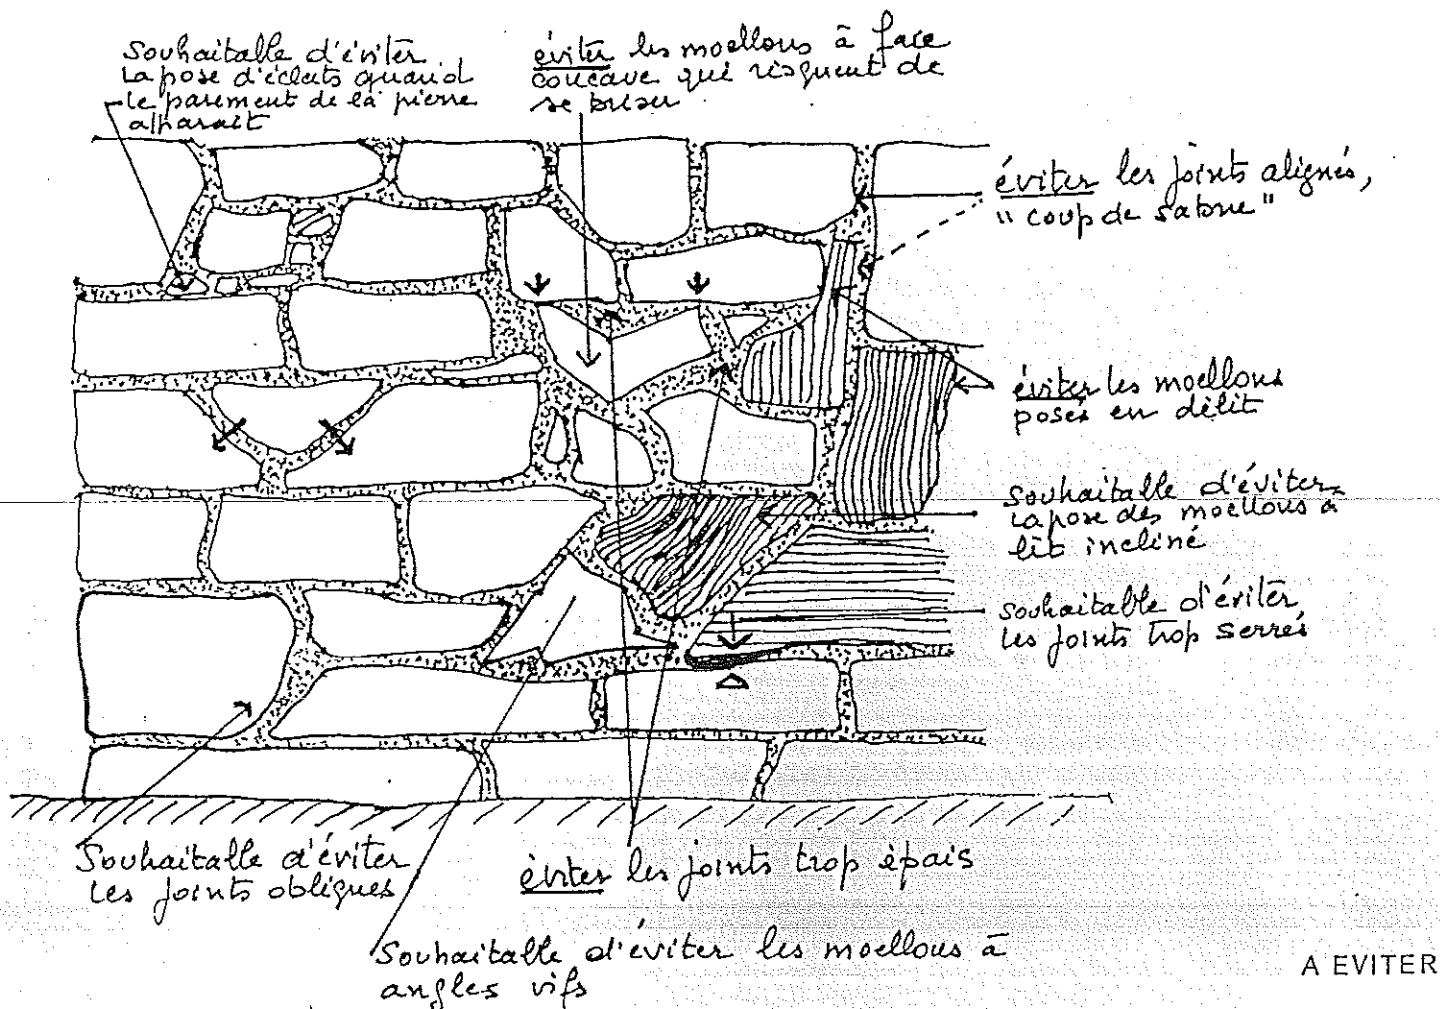 Souhaitable d'éviter
la pose d'éclats quand
le parement de la pierre
apparait
éviter les moellons à face
concave qui risquent de
se briser
éviter les joints alignés,
"coup de sabre"
éviter les moellons
posés en délit
Souhaitable d'éviter
la pose des moellons à
lit incliné
Souhaitable d'éviter
les joints trop serrés
Souhaitable d'éviter
les joints obliques
éviter les joints trop épais
Souhaitable d'éviter les moellons à
angles vifs
A EVITER